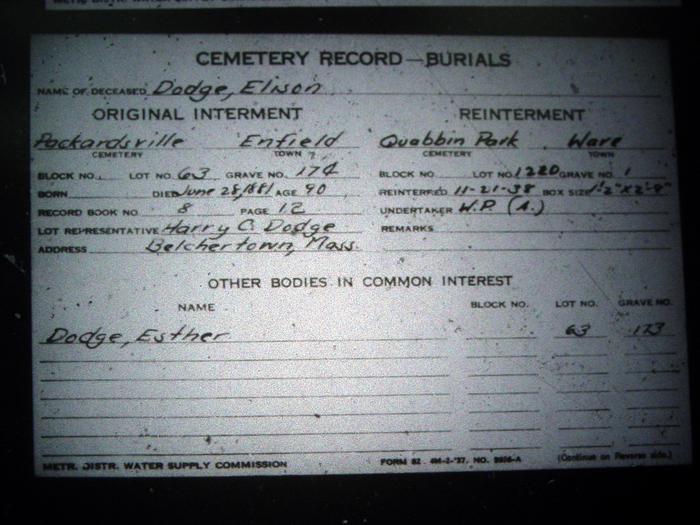 CEMETERY RECORD—BURIALS
NAME OF DECEASED Dodge, Elison
ORIGINAL INTERMENT REINTERMENT
Packardsville Enfield Quabbin Park Ware
CEMETERY TOWN CEMETERY TOWN
BLOCK NO. LOT NO. 63 GRAVE NO. 174 BLOCK NO. LOT NO. 1220 GRAVE NO. 1
BORN DIED June 28, 1881 AGE 90 REINTERRED 11-21-38 BOX SIZE
RECORD BOOK NO. 8 PAGE 12 UNDERTAKER W.P. (A.)
LOT REPRESENTATIVE Harry C. Dodge REMARKS
ADDRESS Belchertown, Mass.
OTHER BODIES IN COMMON INTEREST
NAME BLOCK NO. LOT NO. GRAVE NO.
Dodge, Esther 63 173
METR. DISTR. WATER SUPPLY COMMISSION FORM 82. NO. (Continue on Reverse side.)